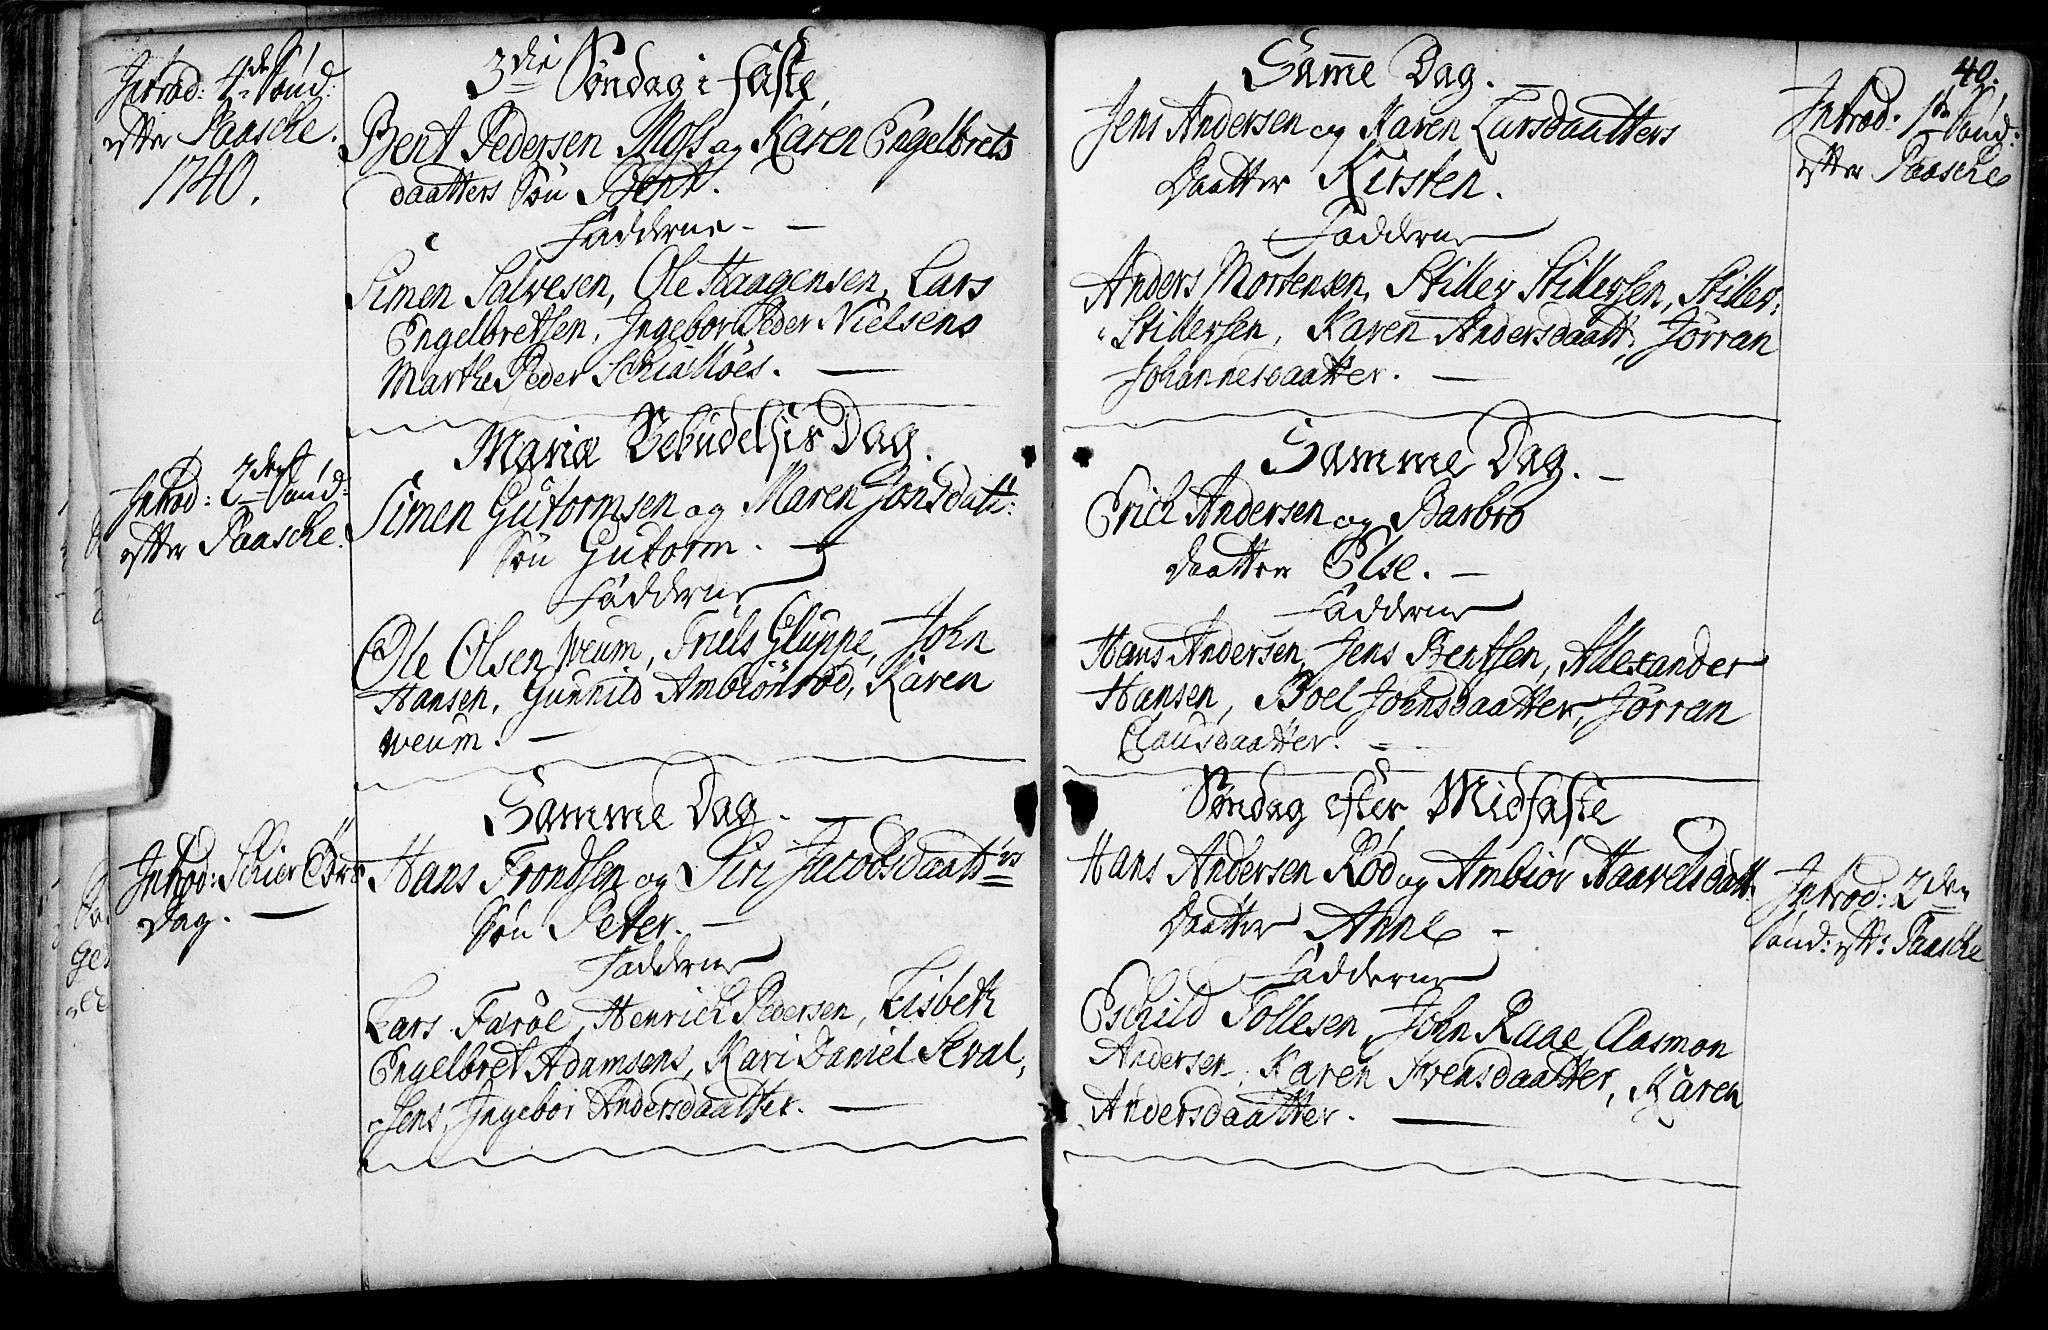 Introd: 4de Sönd:
efter Paasche.
1740.
3die Söndag i Faste
Bent Pedersen Moss og Karen Engelbrets
daatters Sön Bent.
Fadderne.
Simen Salvesen, Ole Haagensen, Lars
Engelbretsen, Ingebor Peder Nielsens
Marthe Peder Schialløes.
Introd: 2den Sönd:
efter Paasche.
Mariæ Bebudelsis Dag.
Simen Gutormsen og Maren Jonsdatt:
Sön Gutorm.
Fadderne
Ole Olsen Weum, Truls Gluppe, John
Hansen, Gunnild Ambiönröd, Karen
Weum.
Introd: Schier Tors
Dag.
Samme Dag.
Hans Trondsen og Siri Jacobsdaatrs
Sön Peter.
Fadderne
Lars Faröe, Henrich Pedersen, Lisbeth
Engelbret Adamsens, Kari Daniel Skral,
Jens, Ingebor Andersdaatter.
40.
Same Dag.
Jens Andersen og Karen Larsdaatters
Daatter Kirsten.
Fadderne
Anders Mortensen, Stiller Stillersen, Stiller
Stillersen, Karen Andersdaatt, Jörran
Johannesdaatter.
Introd: 1ste Sönd:
efter Paasche
Samme Dag.
Erich Andersen og Barbro
Daatter Else.
Fadderne
Hans Andersen, Jens Bentsen, Allexander
Hansen, Boel Johnsdaatter, Jörran
Clausdaatter.
Söndag efter Midfaste
Hans Andersen Röd og Ambiör Haavelsdatt.
Daatter Anne
Fadderne
Eschild Tollesen, John Raae, Aasmon
Andersen, Karen Svensdaatter, Karen
Andersdaatter.
Introd: 2den
Sönd: eft: Paasche